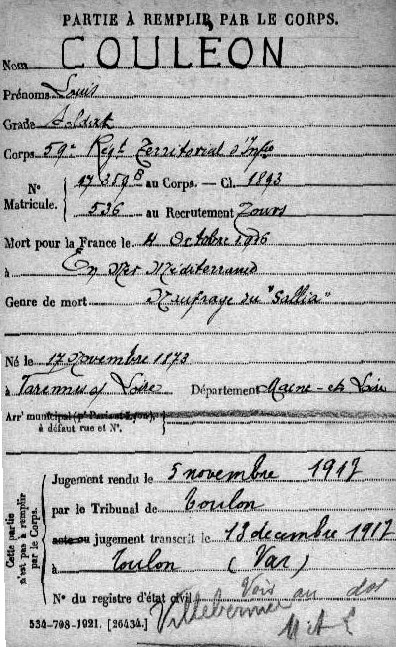 PARTIE À REMPLIR PAR LE CORPS.
Nom COULEON
Prénoms Louis
Grade Soldat
Corps 59e Regt Territorial d'Infie
N° Matricule. { 17359 B au Corps. — Cl. 1893
536 au Recrutement Tours
Mort pour la France le 4 Octobre 1916
à En Mer Méditerranée
Genre de mort Naufrage du "Gallia"
Né le 17 Novembre 1873
à Varennes s/ Loire Département Maine-et-Loire
Arrt municipal (pr Paris et Lyon), à défaut rue et N°.
Cette partie n'est pas à remplir par le Corps.
Jugement rendu le 5 novembre 1917
par le Tribunal de Toulon
acte ou jugement transcrit le 13 décembre 1917
à Toulon (Var)
N° du registre d'état civil Voir au dos
Villebernier M et L
534-708-1921. [26434.]